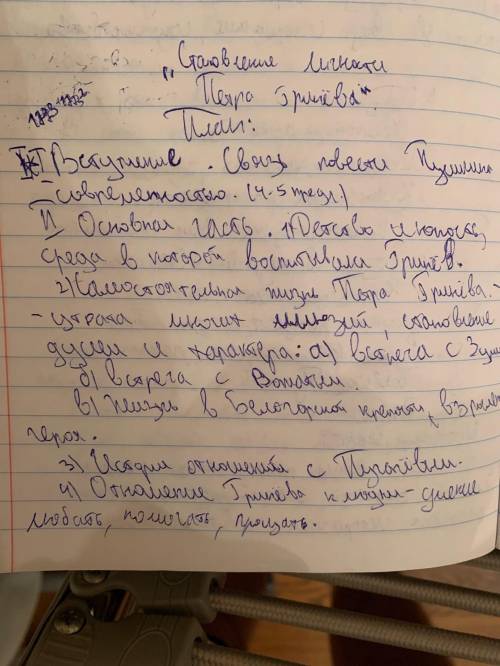 "Становление личности
Петра Гринёва".
План:
I Вступление. Связь повести Пушкина
современностью. (4-5 предл.)
II Основная часть. 1) Детство и юность,
среда в которой воспитывался Гринёв.
2) Самостоятельная жизнь Петра Гринёва. -
- утрата многих иллюзий, становление
души и характера: а) встреча с
б) встреча с Вожатым.
в) Жизнь в Белогорской крепости,
героя.
3) История отношений с Пугачёвым.
4) Отношение Гринёва к людям - умение
любить, помогать, прощать.